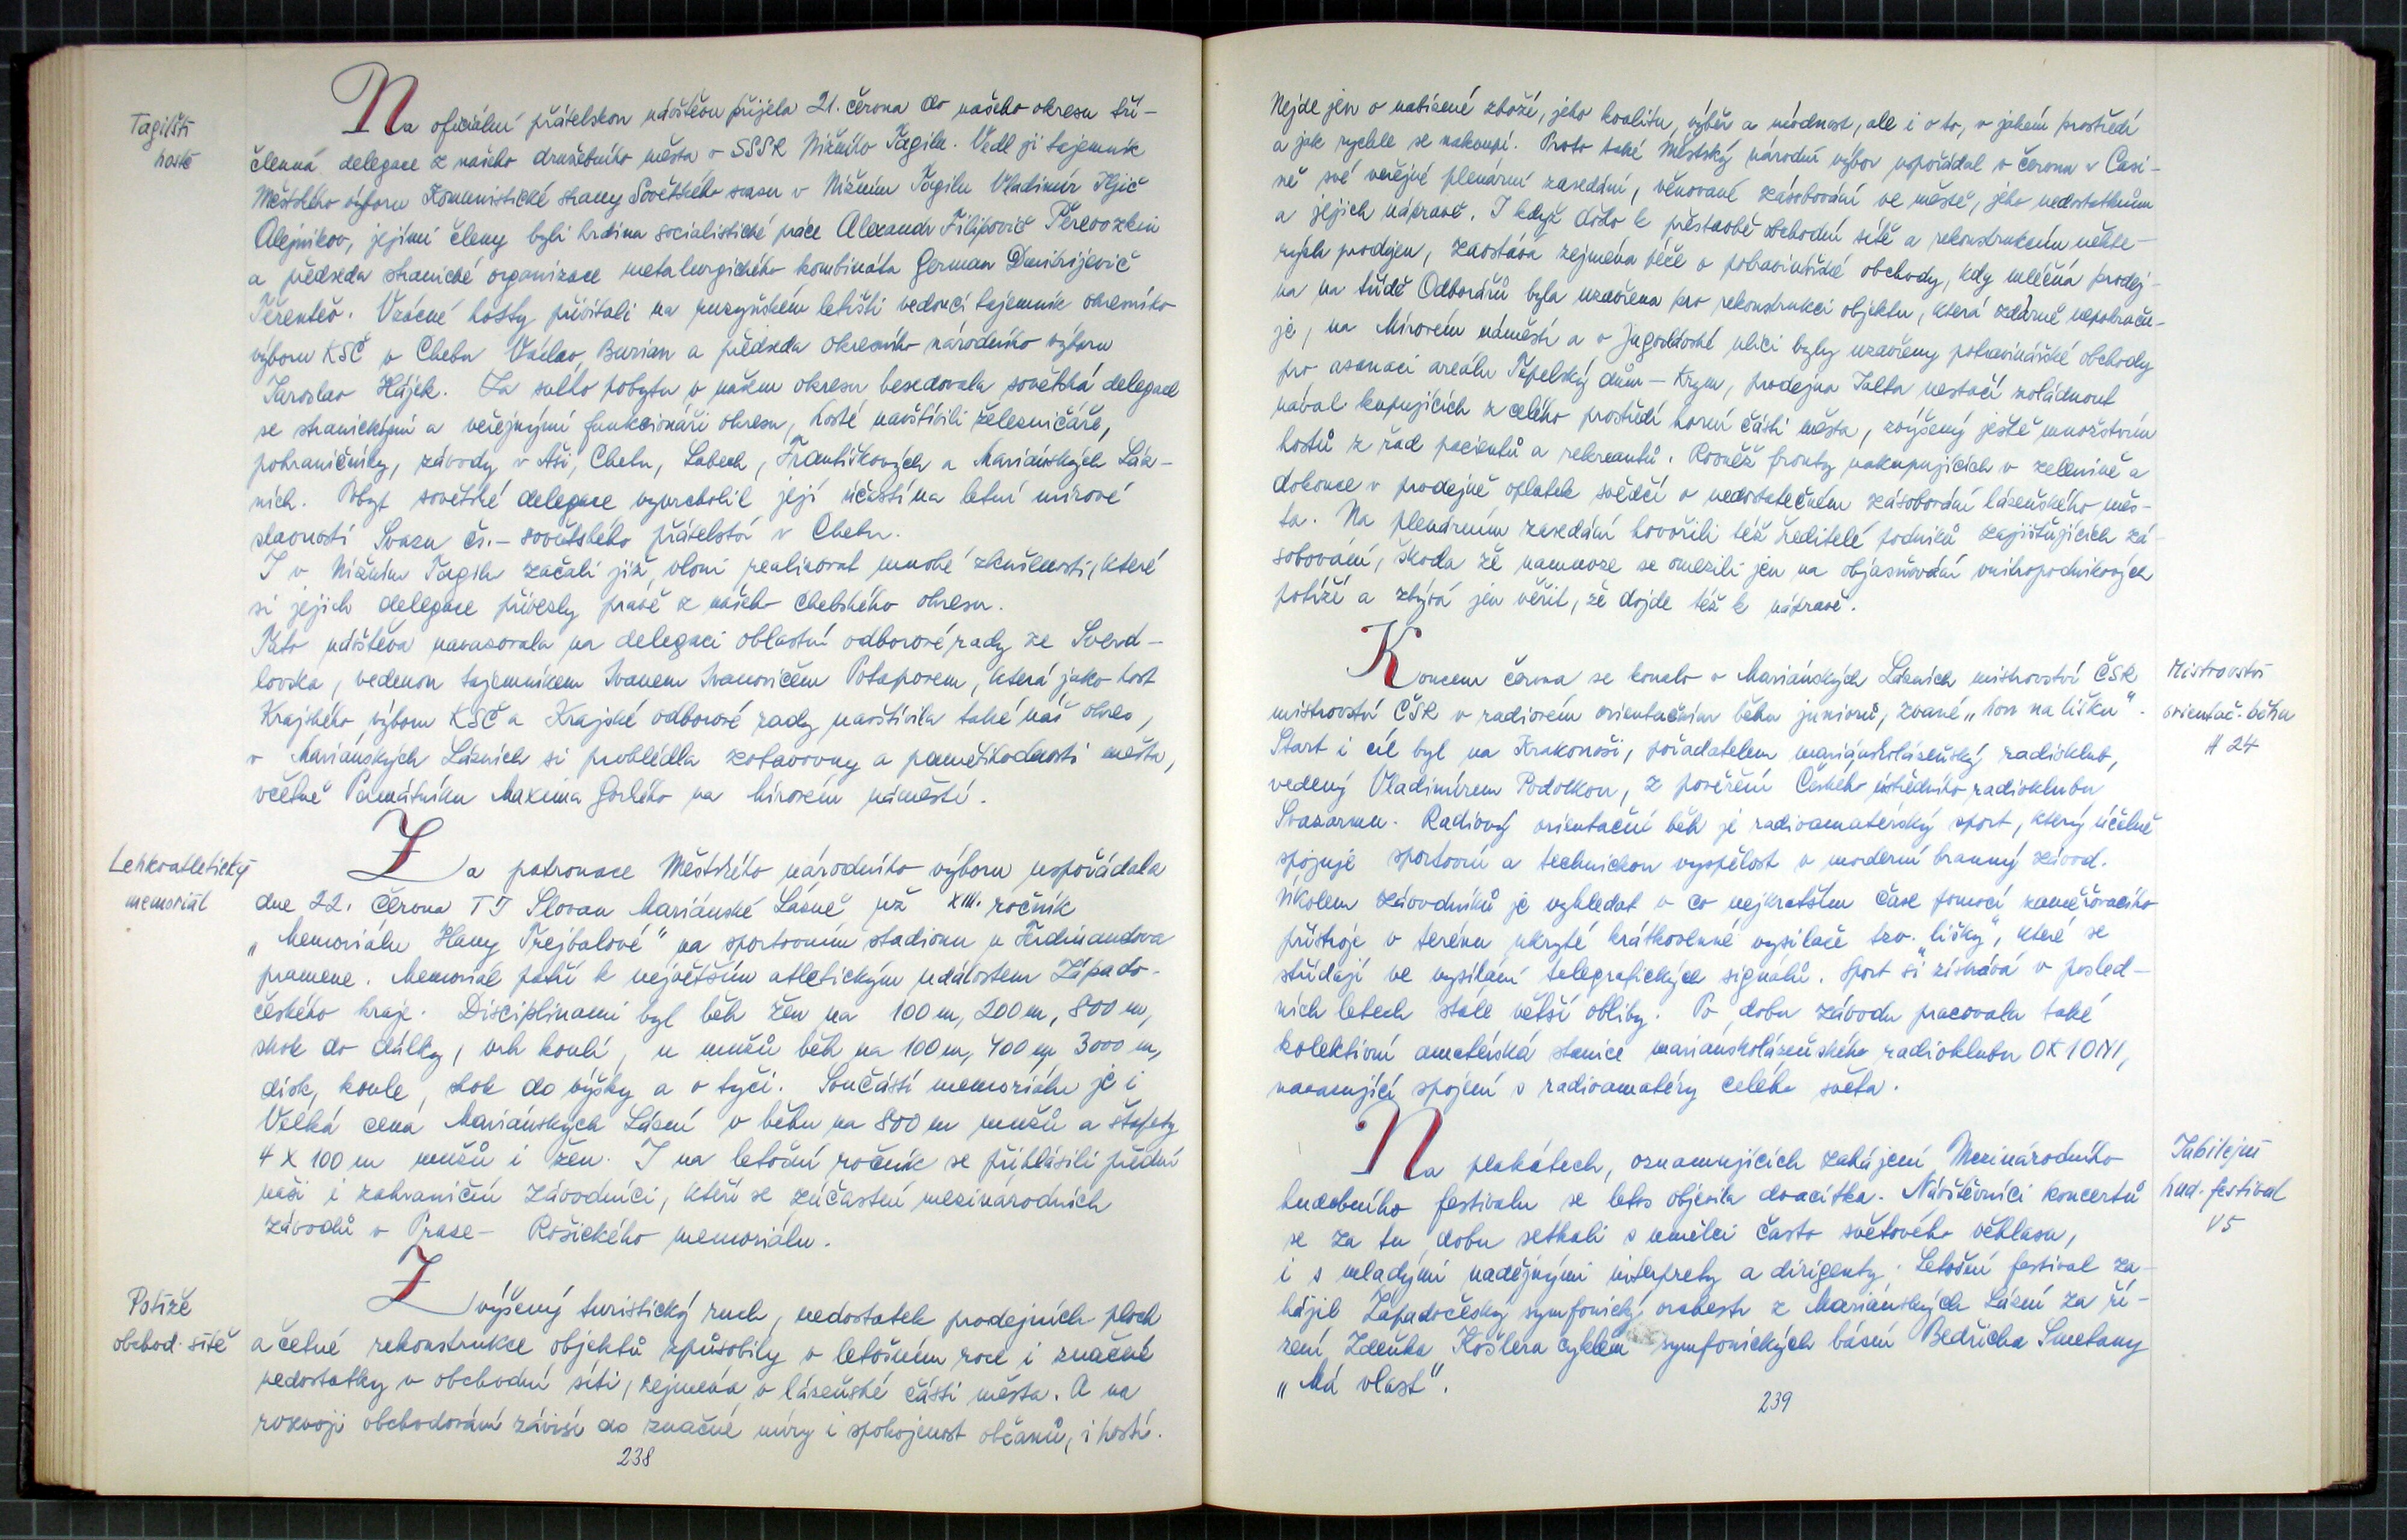 Tagilští
hosté
Na oficiální přátelskou návštěvu přijela 21. června do našeho okresu tří-
členná delegace z našeho družebního města v SSSR Nižního Tagilu. Vedl ji tajemník
Městského výboru Komunistické strany Sovětského svazu v Nižním Tagilu Vladimír Iljič
Alejnikov, jejími členy byli hrdina socialistické práce Alexandr Filipovič Perevozkin
a předseda stranické organizace metalurgického kombinátu German Dmitrijevič
Terentěv. Vzácné hosty přivítali na ruzyňském letišti vedoucí tajemník okresního
výboru KSČ v Chebu Václav Burian a předseda okresního národního výboru
Jaroslav Hájek. Za svého pobytu v našem okresu besedovala sovětská delegace
se stranickými a veřejnými funkcionáři okresu, hosté navštívili železničáře,
pohraničníky, závody v Aši, Chebu, Lubech, Františkových a Mariánských Láz-
ních. Pobyt sovětské delegace vyvrcholil její účastí na letní mírové
slavnosti Svazu čs.-sovětského přátelství v Chebu.
I v Nižním Tagilu začali již vloni realizovat mnohé zkušenosti, které
si jejich delegace přivezly právě z našeho chebského okresu.
Tato návštěva navazovala na delegaci oblastní odborové rady ze Sverd-
lovska, vedenou tajemníkem Ivanem Ivanovičem Potapovem, která jako host
Krajského výboru KSČ a Krajské odborové rady navštívila také náš okres,
v Mariánských Lázních si prohlédla zotavovny a pamětihodnosti města,
včetně Památníku Maxima Gorkého na Mírovém náměstí.
Lehkoatletický
memoriál
Za patronace Městského národního výboru uspořádala
dne 22. června TJ Slovan Mariánské Lázně už XIII. ročník
"Memoriálu Hany Trejbalové" na sportovním stadionu u Ferdinandova
pramene. Memoriál patří k největším atletickým událostem Západo-
českého kraje. Disciplinami byl běh žen na 100 m, 200 m, 800 m,
skok do dálky, vrh koulí, u mužů běh na 100 m, 400 m, 3000 m,
disk, koule, skok do výšky a o tyči. Součástí memoriálu je i
Velká cena Mariánských Lázní v běhu na 800 m mužů a štafety
4 x 100 m mužů i žen. I na letošní ročník se přihlásili přední
naši i zahraniční závodníci, kteří se zúčastní mezinárodních
závodů v Praze - Rošického memoriálu.
Potíže
obchod. sítě
Zvýšený turistický ruch, nedostatek prodejních ploch
a četné rekonstrukce objektů způsobily v letošním roce i značné
nedostatky v obchodní síti, zejména v lázeňské části města. A na
rozvoji obchodování závisí do značné míry i spokojenost občanů, i hostí.
238
Nejde jen o nabízené zboží, jeho kvalitu, výběr a módnost, ale i o to, v jakém prostředí
a jak rychle se nakoupí. Proto také Městský národní výbor uspořádal v červnu v Casi-
ně své veřejné plenární zasedání, věnované zásobování ve městě, jeho nedostatkům
a jejich nápravě. I když došlo k přestavbě obchodní sítě a rekonstrukcím někte-
rých prodejen, zaostává zejména péče o potravinářské obchody, kdy mléčná prodej-
na na třídě Odborářů byla uzavřena pro rekonstrukci objektu, která zdárně nepokraču-
je, na Mírovém náměstí a v Jugoslávské ulici byly uzavřeny potravinářské obchody
pro asanaci areálu Tepelský dům - Krym, prodejna Jalta nestačí zvládnout
nával kupujících z celého prostředí horní části města, zvýšený ještě množstvím
hostů z řad pacientů a rekreantů. Rovněž fronty nakupujících v zelenině a
dokonce v prodejně oplatek svědčí o nedostatečném zásobování lázeňského měs-
ta. Na plenárním zasedání hovořili též ředitelé podniků zajišťujících zá-
sobování, škoda že namnoze se omezili jen na objasňování vnitropodnikových
potíží a zbývá jen věřit, že dojde též k nápravě.
Koncem června se konalo v Mariánských Lázních mistrovství ČSR
mistrovství ČSR v radiovém orientačním běhu juniorů, zvané "hon na lišku".
Start i cíl byl na Krakonoši, pořadatelem mariánskolázeňský radioklub,
vedený Vladimírem Podolkou, z pověření Českého ústředního radioklubu
Svazarmu. Radiový orientační běh je radioamatérský sport, který účelně
spojuje sportovní a technickou vyspělost v moderní branný závod.
Úkolem závodníků je vyhledat v co nejkratším čase pomocí zaměřovacího
přístroje v terénu ukryté krátkovlnné vysílače tzv. "lišky", které se
střídají ve vysílání telegrafických signálů. Sport si získává v posled-
ních letech stále větší obliby. Po dobu závodu pracovala také
kolektivní amatérská stanice mariánskolázeňského radioklubu OK 1 ONI,
navazující spojení s radioamatéry celého světa.
Mistrovství
orientač. běhu
H 24
Na plakátech, oznamujících zahájení Mezinárodního
hudebního festivalu se letos objevila dvacítka. Návštěvníci koncertů
se za tu dobu setkali s umělci často světového věhlasu,
i s mladými nadějnými interprety a dirigenty. Letošní festival za-
hájil Západočeský symfonický orchestr z Mariánských Lázní za ří-
zení Zdeňka Košlera cyklem symfonických básní Bedřicha Smetany
"Má vlast".
Jubilejní
hud. festival
V5
239